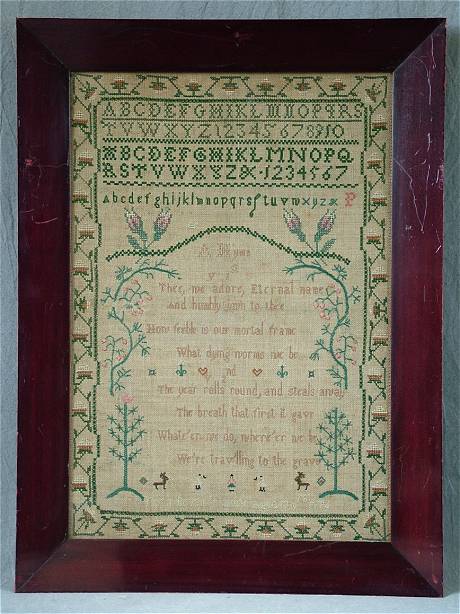 ABCDEFGHIKLMNOPQRS
TVWXYZ12345678910
ABCDEFGHIKLMNOPQ
RSTVWXYZ&1234567
abcdefghijklmnopqrsſtuvwxyz& P
A Hymn
1st
Thee, we adore, Eternal name
And humbly own to thee
How feeble is our mortal frame
What dying worms we be
2nd
The year rolls round, and steals away
The breath that first it gave
Whate'er we do, where'er we be
We're trav'lling to the grave